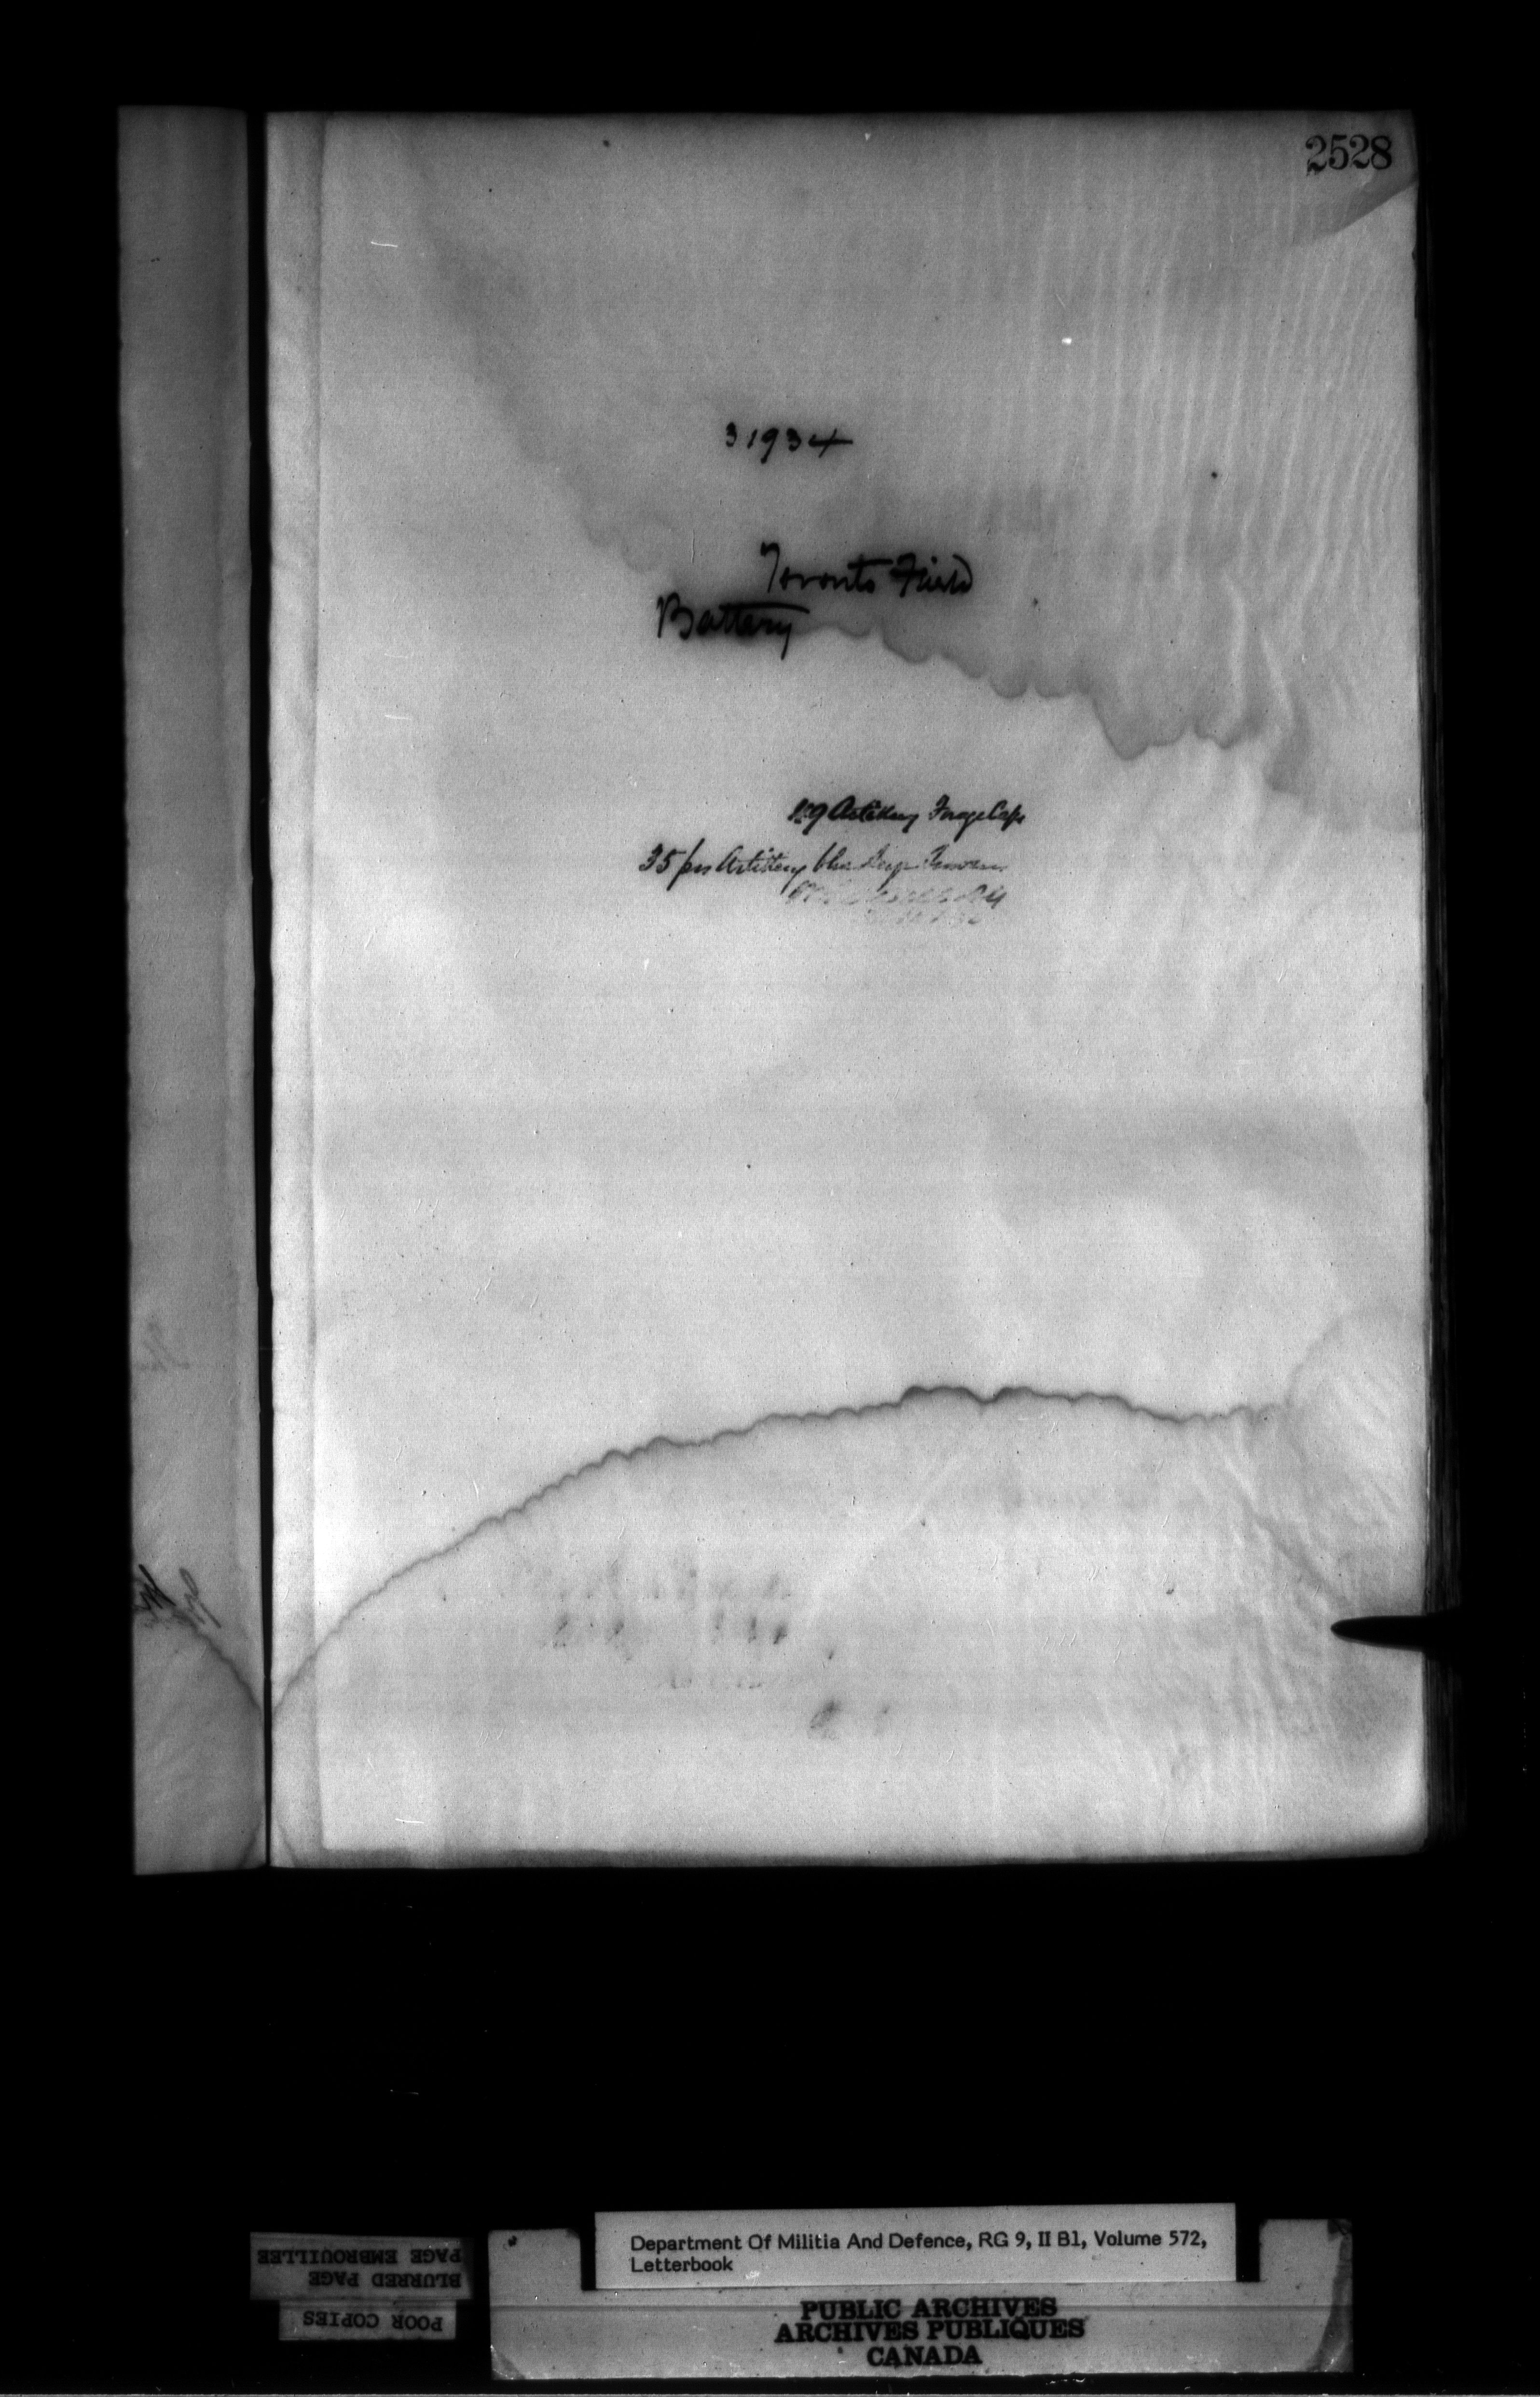 2528
31934
Toronto Field
Battery
Artillery Forage Caps
35 prs Artillery
Department Of Militia And Defence, RG 9, II B1, Volume 572,
Letterbook
PAGE EMBROUILLEE
BLURRED PAGE
POOR COPIES
PUBLIC ARCHIVES
ARCHIVES PUBLIQUES
CANADA